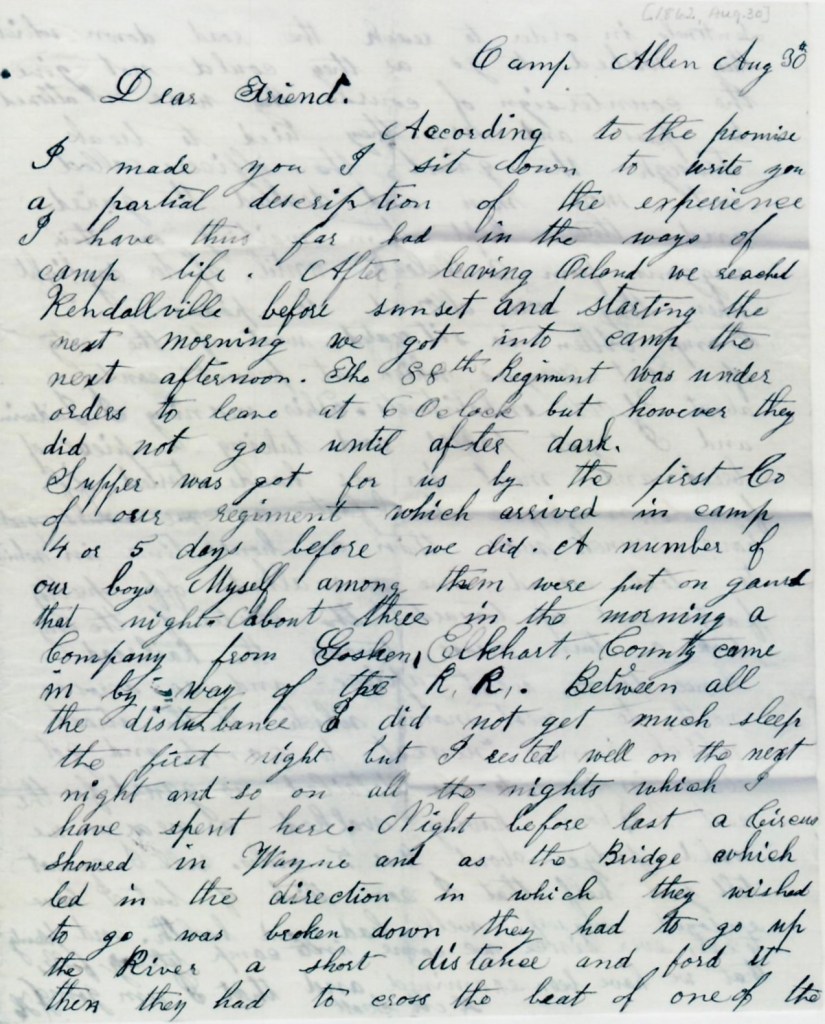 [1862, Aug. 30]
Camp Allen Aug 30th
Dear Friend.
According to the promise
I made you I sit down to write you
a partial description of the experience
I have thus far had in the ways of
camp life. After leaving Orland we reached
Kendallville before sunset and starting the
next morning we got into camp the
next afternoon. The 88th Regiment was under
orders to leave at 6 Oclock but however they
did not go until after dark.
Supper was got for us by the first Co
of our regiment which arrived in camp
4 or 5 days before we did. A number of
our boys Myself among them were put on gaurd
that night. About three in the morning a
Company from Goshen, Elkhart. County came
in by way of the R. R.. Between all
the disturbance I did not get much sleep
the first night but I rested well on the next
night and so on all the nights which I
have spent here. Night before last a Circus
showed in Wayne and as the Bridge which
led in the direction in which they wished
to go was broken down they had to go up
the River a short distance and ford it
then they had to cross the beat of one of the